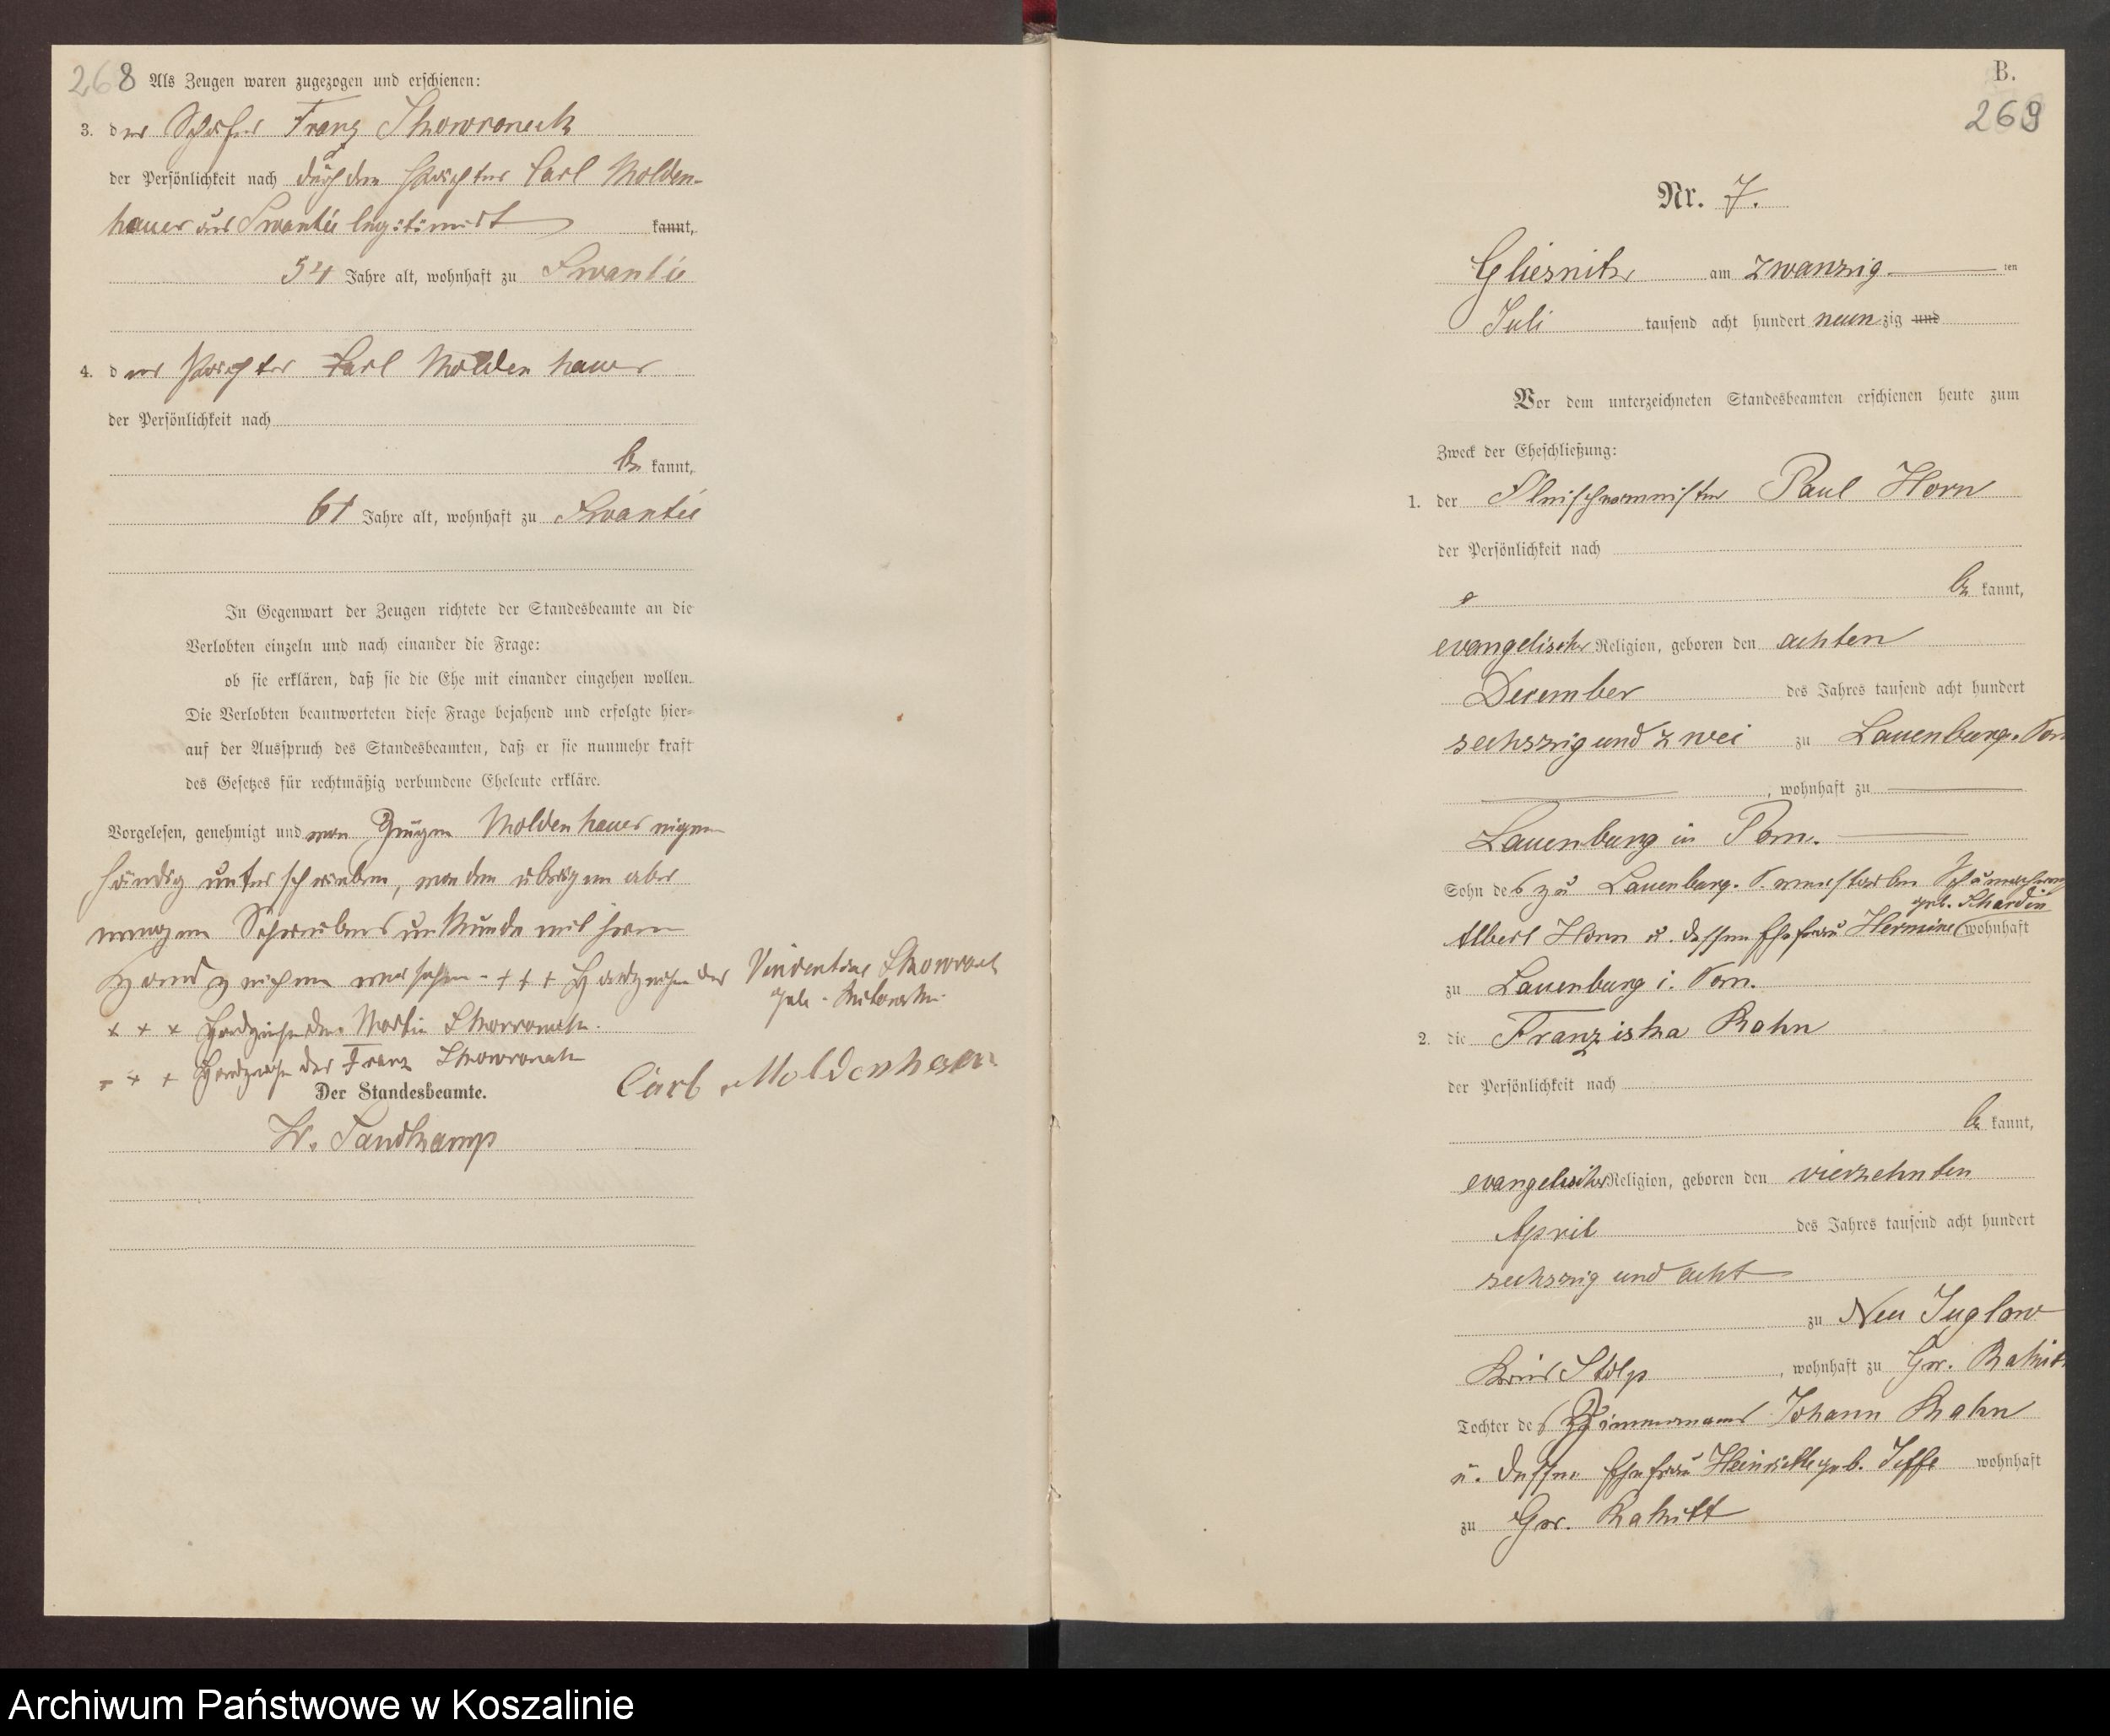 268 Als Zeugen waren zugezogen und erschienen:
3. der Schäfer Franz Skowroneck
der Persönlichkeit nach durch den Pächter Carl Molden-
hauer aus Swantii legitimirt kannt,
54 Jahre alt, wohnhaft zu Swantii
4. der Pächter Carl Moldenhauer
der Persönlichkeit nach
be kannt,
61 Jahre alt, wohnhaft zu Swantii
In Gegenwart der Zeugen richtete der Standesbeamte an die
Verlobten einzeln und nach einander die Frage:
ob sie erklären, daß sie die Ehe mit einander eingehen wollen.
Die Verlobten beantworteten diese Frage bejahend und erfolgte hier-
auf der Ausspruch des Standesbeamten, daß er sie nunmehr kraft
des Gesetzes für rechtmäßig verbundene Eheleute erkläre.
Vorgelesen, genehmigt und von Zeugen Moldenhauer eigen
händig unterschrieben, von den übrigen aber
wegen Schreibensunkunde mit ihren
Handzeichen versehen - + + + Handzeichen der
geb.
+ + + Handzeichen des Martin Skowroneck.
+ + + Handzeichen des Franz Skowroneck
Carl Moldenhauer
Der Standesbeamte.
W. Sandkamp
B.
269
Nr. 7.
Gliesnitz am zwanzig ten
Juli tausend acht hundert neunzig und
Vor dem unterzeichneten Standesbeamten erschienen heute zum
Zweck der Eheschließung:
1. der Fleischermeister Paul Horn
der Persönlichkeit nach
be kannt,
evangelischer Religion, geboren den achten
December des Jahres tausend acht hundert
sechszig und zwei zu Lauenburg. Pom
, wohnhaft zu
Lauenburg in Pom.
Sohn des zu Lauenburg. P. verstorbenen
geb.
Albert Horn u. dessen Ehefrau Hermine wohnhaft
zu Lauenburg i. Pom.
2. die Franziska Rahn
der Persönlichkeit nach
be kannt,
evangelischer Religion, geboren den vierzehnten
April des Jahres tausend acht hundert
sechszig und acht
zu Neu Juglow
Kreis Stolp, wohnhaft zu Gr. Rakitt
Tochter des Zimmermanns Johann Rahn
u. dessen Ehefrau Heinriette geb. wohnhaft
zu Gr. Rakitt
Archiwum Państwowe w Koszalinie